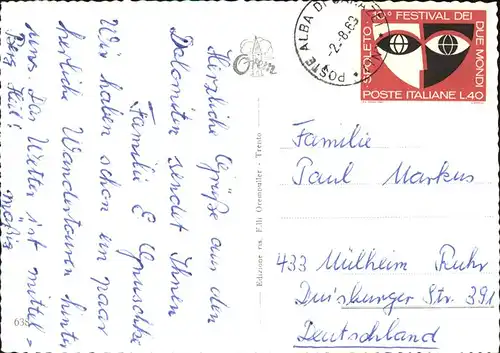 Herzliche Grüße aus den
Dolomiten sendet Ihnen
Familie E. Gnuschke
Wir haben schon ein paar
herrliche Wandertouren hinter
uns. Das Wetter ist mittel=
mäßig
Berg Heil!
Orem
Edizione ris. F.lli Oremouller - Trento
638
POSTE ALBA DI CANAZEI
-2-8.69
SPOLETO FESTIVAL DEI DUE MONDI
POSTE ITALIANE L.40
Familie
Paul Markus
433 Mülheim Ruhr
Duisburger Str. 391
Deutschland